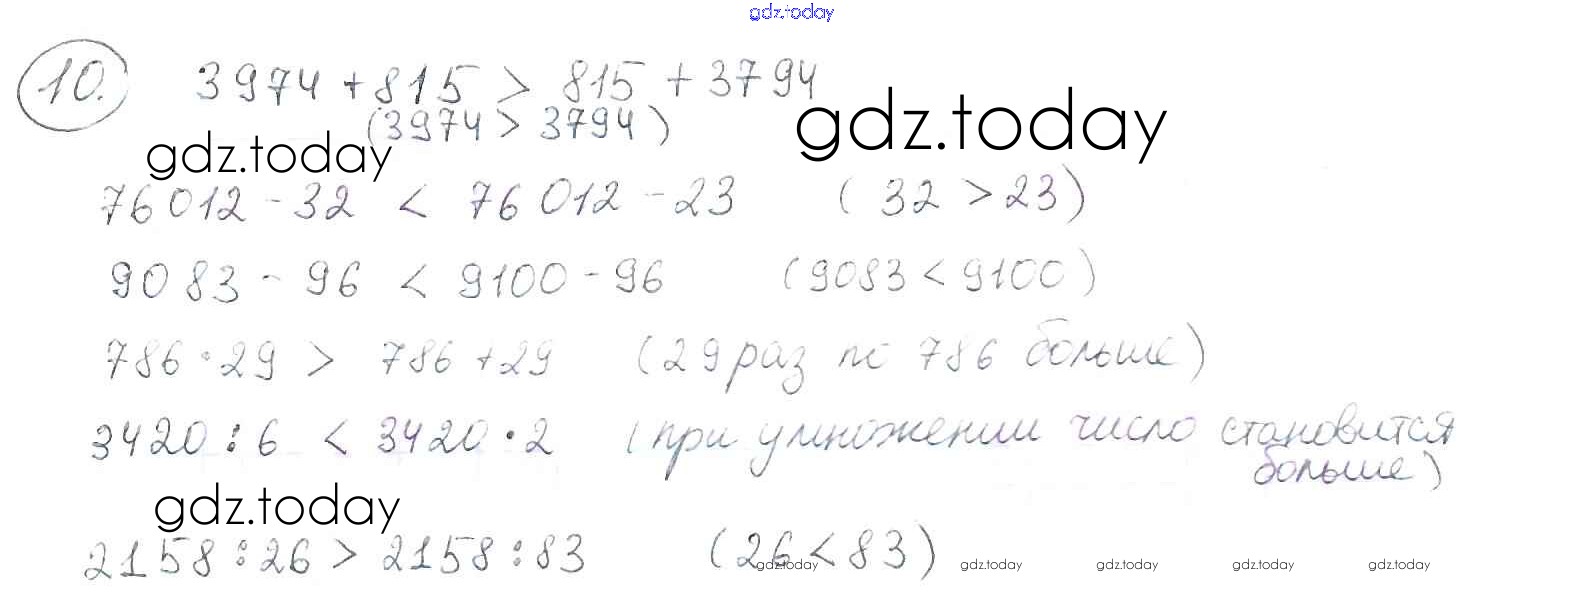 gdz.today
10. 3974 + 815 > 815 + 3794
(3974 > 3794)
gdz.today
gdz.today
76012 - 32 < 76012 - 23 (32 > 23)
9083 - 96 < 9100 - 96 (9083 < 9100)
786 · 29 > 786 + 29 (29 раз по 786 больше)
3420 : 6 < 3420 · 2 (при умножении число становится
больше)
gdz.today
2158 : 26 > 2158 : 83 (26 < 83)
gdz.today gdz.today gdz.today gdz.today gdz.today